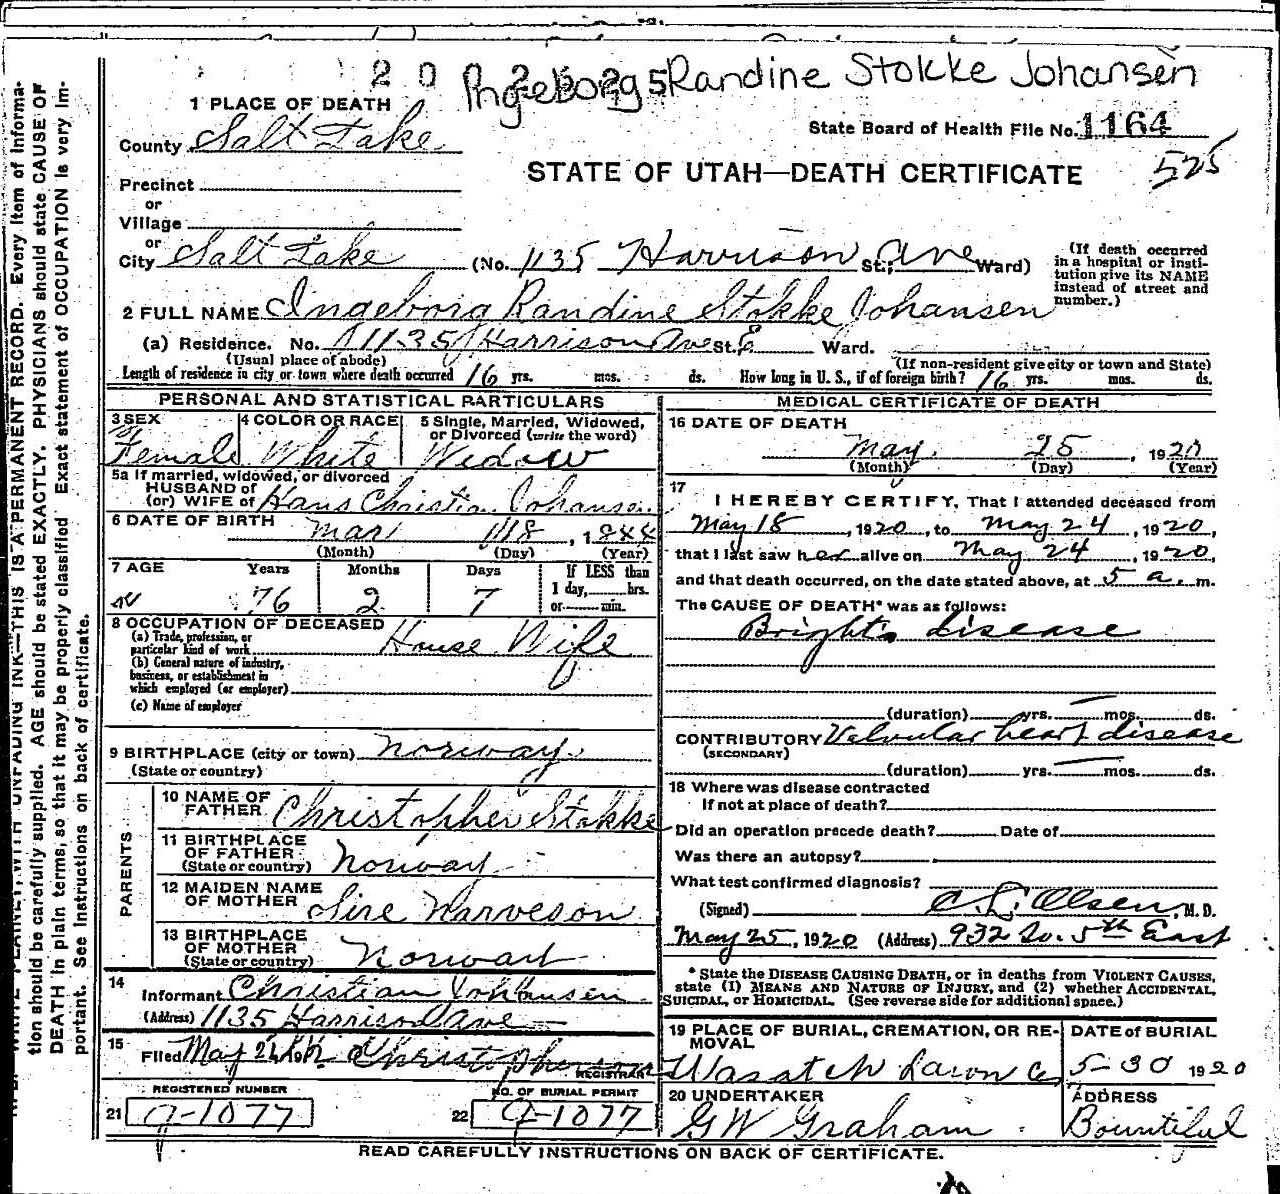 Ingeborg Randine Stokke Johansen
1 PLACE OF DEATH
State Board of Health File No. 1164
County Salt Lake
525
STATE OF UTAH—DEATH CERTIFICATE
Precinct
or
Village
or
City Salt Lake (No. 1135 Harrison St.; Ave Ward)
(If death occurred in a hospital or institution give its NAME instead of street and number.)
2 FULL NAME Ingeborg Randine Stokke Johansen
(a) Residence. No. 1135 Harrison Ave St. E Ward.
(Usual place of abode) (If non-resident give city or town and State)
Length of residence in city or town where death occurred 16 yrs. mos. ds. How long in U. S., if of foreign birth? 16 yrs. mos. ds.
PERSONAL AND STATISTICAL PARTICULARS
3 SEX Female
4 COLOR OR RACE White
5 Single, Married, Widowed, or Divorced (write the word) Widow
5a If married, widowed, or divorced
HUSBAND of
(or) WIFE of Hans Christian Johansen
6 DATE OF BIRTH Mar 18, 1844
(Month) (Day) (Year)
7 AGE Years Months Days If LESS than
76 2 7 1 day, hrs.
or min.
8 OCCUPATION OF DECEASED
(a) Trade, profession, or particular kind of work House Wife
(b) General nature of industry, business, or establishment in which employed (or employer)
(c) Name of employer
9 BIRTHPLACE (city or town) Norway
(State or country)
PARENTS
10 NAME OF FATHER Christopher Stokke
11 BIRTHPLACE OF FATHER (State or country) Norway
12 MAIDEN NAME OF MOTHER Sire Narveson
13 BIRTHPLACE OF MOTHER (State or country) Norway
14
Informant Christian Johansen
(Address) 1135 Harrison Ave
15
Filed May
REGISTRAR
REGISTERED NUMBER
21 9-1077
NO. OF BURIAL PERMIT
22 9-1077
MEDICAL CERTIFICATE OF DEATH
16 DATE OF DEATH
May 25, 1920
(Month) (Day) (Year)
17
I HEREBY CERTIFY, That I attended deceased from
May 18, 1920, to May 24, 1920,
that I last saw her alive on May 24, 1920,
and that death occurred, on the date stated above, at 5 a. m.
The CAUSE OF DEATH* was as follows:
Bright's disease
(duration) yrs. mos. ds.
CONTRIBUTORY Valvular heart disease
(SECONDARY)
(duration) yrs. mos. ds.
18 Where was disease contracted
If not at place of death?
Did an operation precede death? Date of
Was there an autopsy?
What test confirmed diagnosis?
(Signed) C. L. Olsen, M. D.
May 25, 1920 (Address) 932 So. 5th East
* State the DISEASE CAUSING DEATH, or in deaths from VIOLENT CAUSES,
state (1) MEANS AND NATURE OF INJURY, and (2) whether ACCIDENTAL,
SUICIDAL, or HOMICIDAL. (See reverse side for additional space.)
19 PLACE OF BURIAL, CREMATION, OR REMOVAL
Wasatch Lawn
DATE of BURIAL
5-30 1920
20 UNDERTAKER
GW Graham
ADDRESS
Bountiful
READ CAREFULLY INSTRUCTIONS ON BACK OF CERTIFICATE.
WRITE PLAINLY, WITH UNFADING INK—THIS IS A PERMANENT RECORD. Every item of Informa-
tion should be carefully supplied. AGE should be stated EXACTLY. PHYSICIANS should state CAUSE OF
DEATH in plain terms, so that it may be properly classified. Exact statement of OCCUPATION is very im-
portant. See instructions on back of certificate.